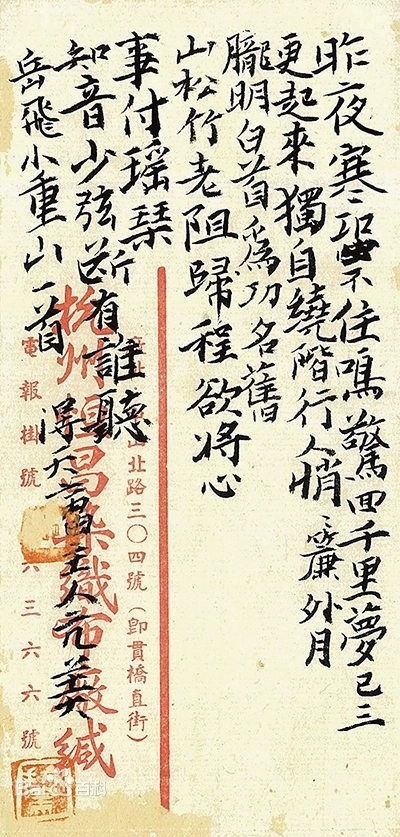 昨夜寒蛩不住鳴驚回千里夢已三
更起來獨自繞階行人悄〻簾外月
朧明白首為功名舊
山松竹老阻歸程欲將心
事付瑤琴
知音少弦断有誰聽
岳飛小重山一首
山北路三〇四號（即貫橋直街）
杭州昌染織布廠緘
電報掛號 六三六六號
Baidu百科